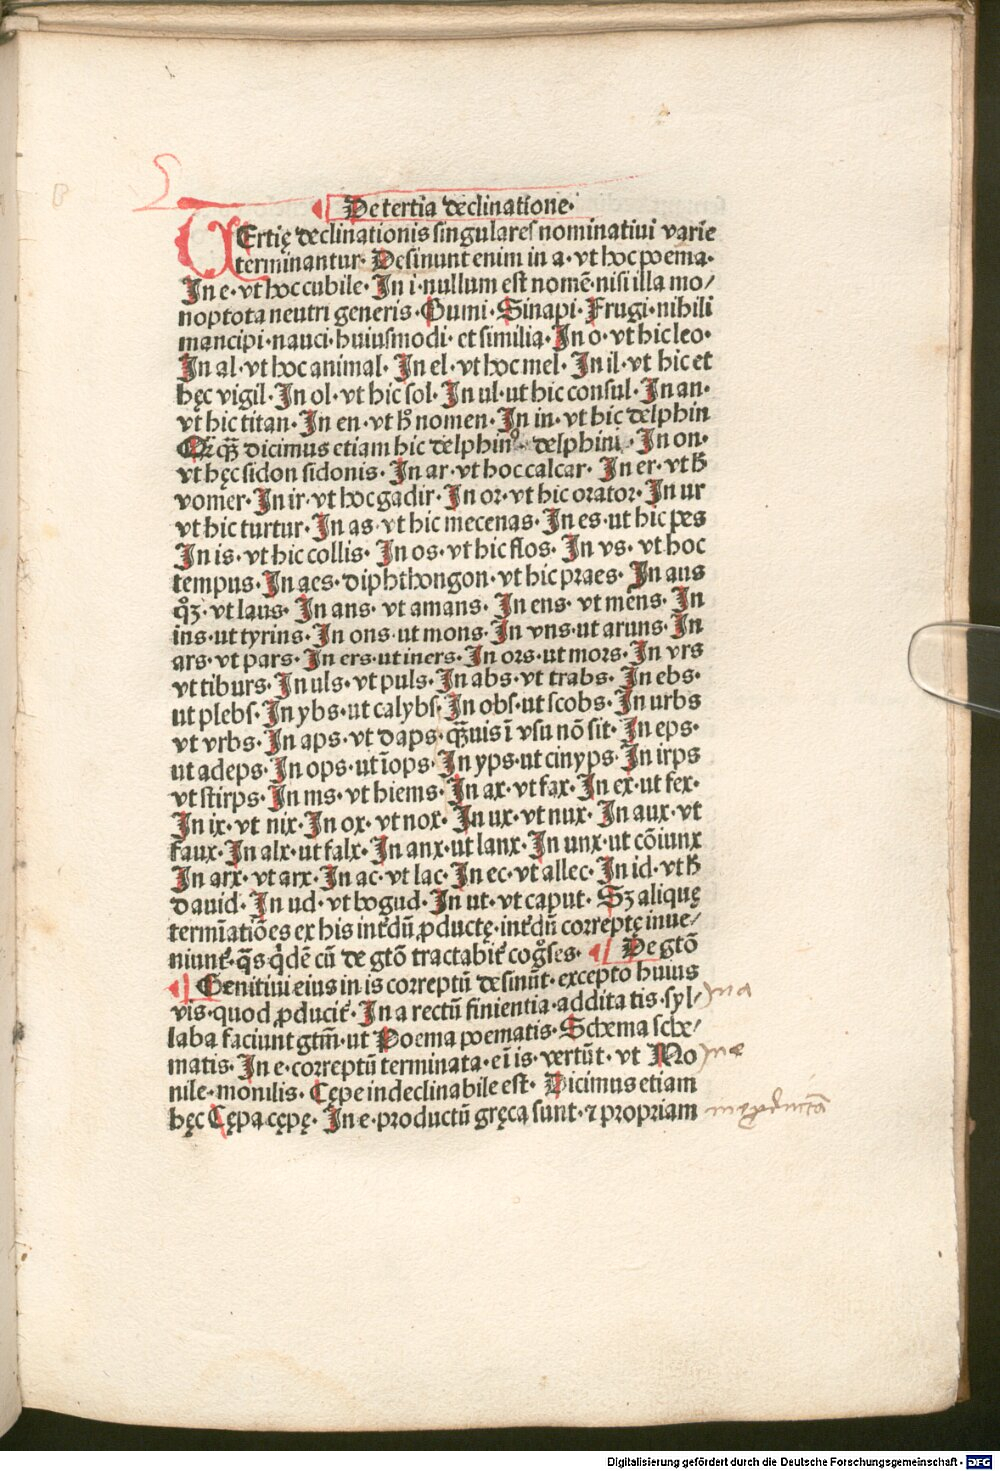 De tertia declinatione·
TErtię declinationis singulares nominatiui varie
terminantur· Desinunt enim in a· vt hoc poema·
In e· vt hoc cubile· In i· nullum est nomē· nisi illa mo/
noptota neutri generis· Gumi· Sinapi· Frugi· nihili
mancipi· nauci· huiusmodi· et similia· In o· vt hic leo·
In al· vt hoc animal· In el· vt hoc mel· In il· vt hic et
hęc vigil· In ol· vt hic sol· In ul· ut hic consul· In an·
vt hic titan· In en· vt h̄ nomen· In in· vt hic delphin
dicimus etiam hic delphinꝰ· delphini· In on·
vt hęc sidon sidonis· In ar· vt hoc calcar· In er· vt h̄
vomer· In ir· vt hoc gadir· In or· vt hic orator· In ur
vt hic turtur· In as· vt hic mecenas· In es· ut hic pes
In is· vt hic collis· In os· vt hic flos· In vs· vt hoc
tempus· In aes· diphthongon· vt hic praes· In aus
qꝫ· vt laus· In ans· vt amans· In ens· vt mens· In
ins· ut tyrins· In ons· ut mons· In vns· ut aruns· In
ars· vt pars· In ers· ut iners· In ors· ut mors· In vrs
vt tiburs· In uls· vt puls· In abs· vt trabs· In ebs·
ut plebs· In ybs· ut calybs· In obs· ut scobs· In urbs
vt vrbs· In aps· vt daps· qq̄uis ī vsu nō sit· In eps·
ut adeps· In ops· ut īops· In yps· ut cinyps· In irps
vt stirps· In ms· vt hiems· In ax· vt fax· In ex· ut fex·
In ix· vt nix· In ox· vt nox· In ux· vt nux· In aux· vt
faux· In alx· ut falx· In anx· ut lanx· In unx· ut cōiunx
In arx· vt arx· In ac· vt lac· In ec· vt allec· In id· vt h̄
dauid· In ud· vt bogud· In ut· vt caput· Sꝫ alique̜
termīatiōes ex his intdū ꝓductę· intdū correptę inue/
niunt· q̄s qdē cū de gtō tractabit cogses· De gtō
Genitiui eius in is correptū desinūt· excepto huius
vis· quod ꝓducit· In a rectū finientia· addita tis· syl/ ma
laba faciunt gtm̄· ut Poema poematis· Schema sche/
matis· In e· correptū terminata· eī is· vertūt· vt Mo me
nile· monilis· Cępe indeclinabile est· Dicimus etiam
hęc Cępa cępę· In e· productū gręca sunt· ⁊ propriam
Digitalisierung gefördert durch die Deutsche Forschungsgemeinschaft · DFG